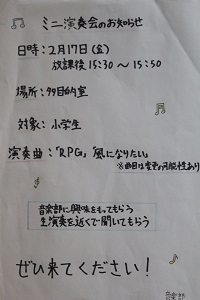 ミニ演奏会のお知らせ
日時：2月17日(金)
放課後15:30〜15:50
場所：多目的室
対象：小学生
演奏曲：「RPG」「風になりたい」
※曲目は変更の可能性あり
音楽部に興味をもってもらう
生演奏を近くで聞いてもらう
ぜひ来てください！
音楽部